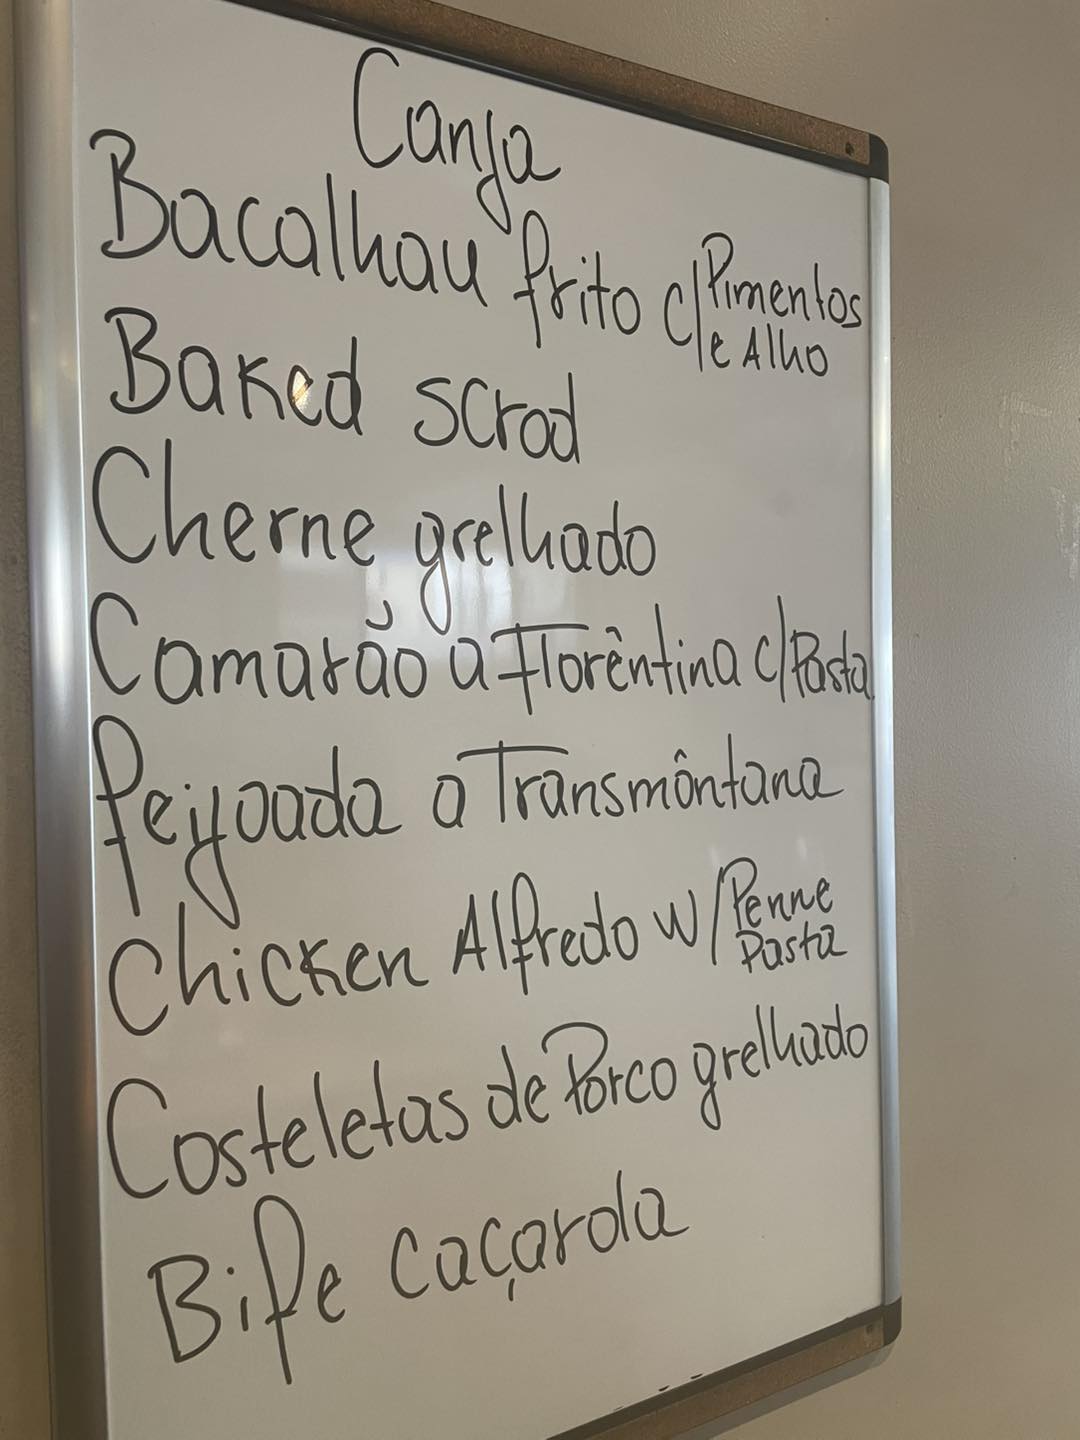 Canja
Bacalhau frito c/Pimentos
e Alho
Baked scrod
Cherne grelhado
Camarão a Florêntina c/Pasta
feijoada a Transmôntana
Chicken Alfredo w/Penne
Pasta
Costeletas de Porco grelhado
Bife caçarola